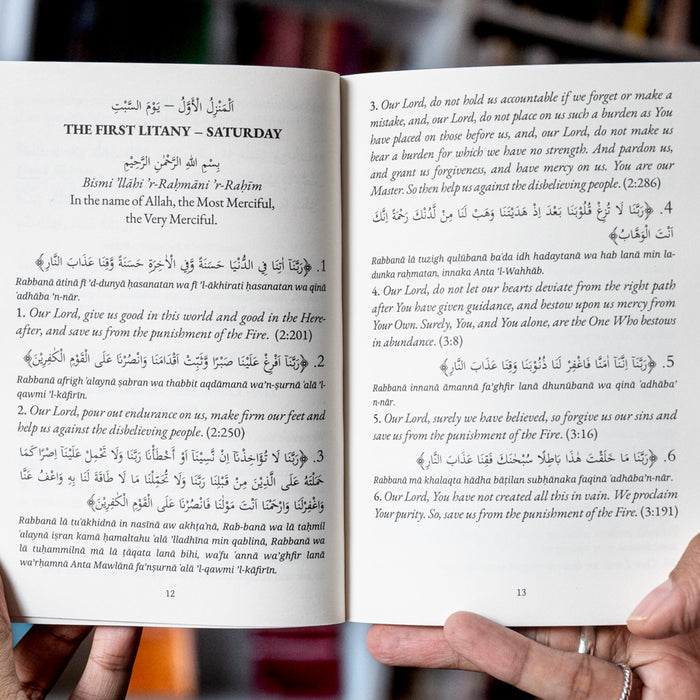 اَلْمَنْزِلُ الْأَوَّلُ – يَوْمَ السَّبْتِ
THE FIRST LITANY – SATURDAY
بِسْمِ اللهِ الرَّحْمٰنِ الرَّحِيْمِ
Bismi 'llāhi 'r-Raḥmāni 'r-Raḥīm
In the name of Allah, the Most Merciful,
the Very Merciful.
1. ﴿رَبَّنَآ اٰتِنَا فِي الدُّنْيَا حَسَنَةً وَّفِي الْاٰخِرَةِ حَسَنَةً وَّقِنَا عَذَابَ النَّارِ﴾
Rabbanā ātinā fī 'd-dunyā ḥasanatan wa fī 'l-ākhirati ḥasanatan wa qinā
'adhāba 'n-nār.
1. Our Lord, give us good in this world and good in the Here-
after, and save us from the punishment of the Fire. (2:201)
2. ﴿رَبَّنَآ اَفْرِغْ عَلَيْنَا صَبْرًا وَّثَبِّتْ اَقْدَامَنَا وَانْصُرْنَا عَلَى الْقَوْمِ الْكٰفِرِيْنَ﴾
Rabbanā afrigh 'alaynā ṣabran wa thabbit aqdāmanā wa'n-ṣurnā 'alā 'l-
qawmi 'l-kāfirīn.
2. Our Lord, pour out endurance on us, make firm our feet and
help us against the disbelieving people. (2:250)
3. ﴿رَبَّنَا لَا تُؤَاخِذْنَآ اِنْ نَّسِيْنَآ اَوْ اَخْطَأْنَا رَبَّنَا وَلَا تَحْمِلْ عَلَيْنَآ اِصْرًا كَمَا
حَمَلْتَهٗ عَلَى الَّذِيْنَ مِنْ قَبْلِنَا رَبَّنَا وَلَا تُحَمِّلْنَا مَا لَا طَاقَةَ لَنَا بِهٖ وَاعْفُ عَنَّا
وَاغْفِرْلَنَا وَارْحَمْنَا اَنْتَ مَوْلٰنَا فَانْصُرْنَا عَلَى الْقَوْمِ الْكٰفِرِيْنَ﴾
Rabbanā lā tu'ākhidnā in nasīnā aw akhṭa'nā, Rab-banā wa lā taḥmil
'alaynā iṣran kamā ḥamaltahu 'alā 'lladhīna min qablinā, Rabbanā wa
lā tuḥammilnā mā lā ṭāqata lanā bihi, wa'fu 'annā wa'ghfir lanā
wa'rḥamnā Anta Mawlānā fa'nṣurnā 'alā 'l-qawmi 'l-kāfirīn.
12
3. Our Lord, do not hold us accountable if we forget or make a
mistake, and, our Lord, do not place on us such a burden as You
have placed on those before us, and, our Lord, do not make us
bear a burden for which we have no strength. And pardon us,
and grant us forgiveness, and have mercy on us. You are our
Master. So then help us against the disbelieving people. (2:286)
4. ﴿رَبَّنَا لَا تُزِغْ قُلُوْبَنَا بَعْدَ اِذْ هَدَيْتَنَا وَهَبْ لَنَا مِنْ لَّدُنْكَ رَحْمَةً اِنَّكَ
اَنْتَ الْوَهَّابُ﴾
Rabbanā lā tuzigh qulūbanā ba'da idh hadaytanā wa hab lanā min la-
dunka raḥmatan, innaka Anta 'l-Wahhāb.
4. Our Lord, do not let our hearts deviate from the right path
after You have given guidance, and bestow upon us mercy from
Your Own. Surely, You, and You alone, are the One Who bestows
in abundance. (3:8)
5. ﴿رَبَّنَآ اِنَّنَآ اٰمَنَّا فَاغْفِرْ لَنَا ذُنُوْبَنَا وَقِنَا عَذَابَ النَّارِ﴾
Rabbanā innanā āmannā fa'ghfir lanā dhunūbanā wa qinā 'adhāba'
n-nār.
5. Our Lord, surely we have believed, so forgive us our sins and
save us from the punishment of the Fire. (3:16)
6. ﴿رَبَّنَا مَا خَلَقْتَ هٰذَا بَاطِلًا سُبْحٰنَكَ فَقِنَا عَذَابَ النَّارِ﴾
Rabbanā mā khalaqta hādha bāṭilan subḥānaka faqinā 'adhāba'n-nār.
6. Our Lord, You have not created all this in vain. We proclaim
Your purity. So, save us from the punishment of the Fire. (3:191)
13